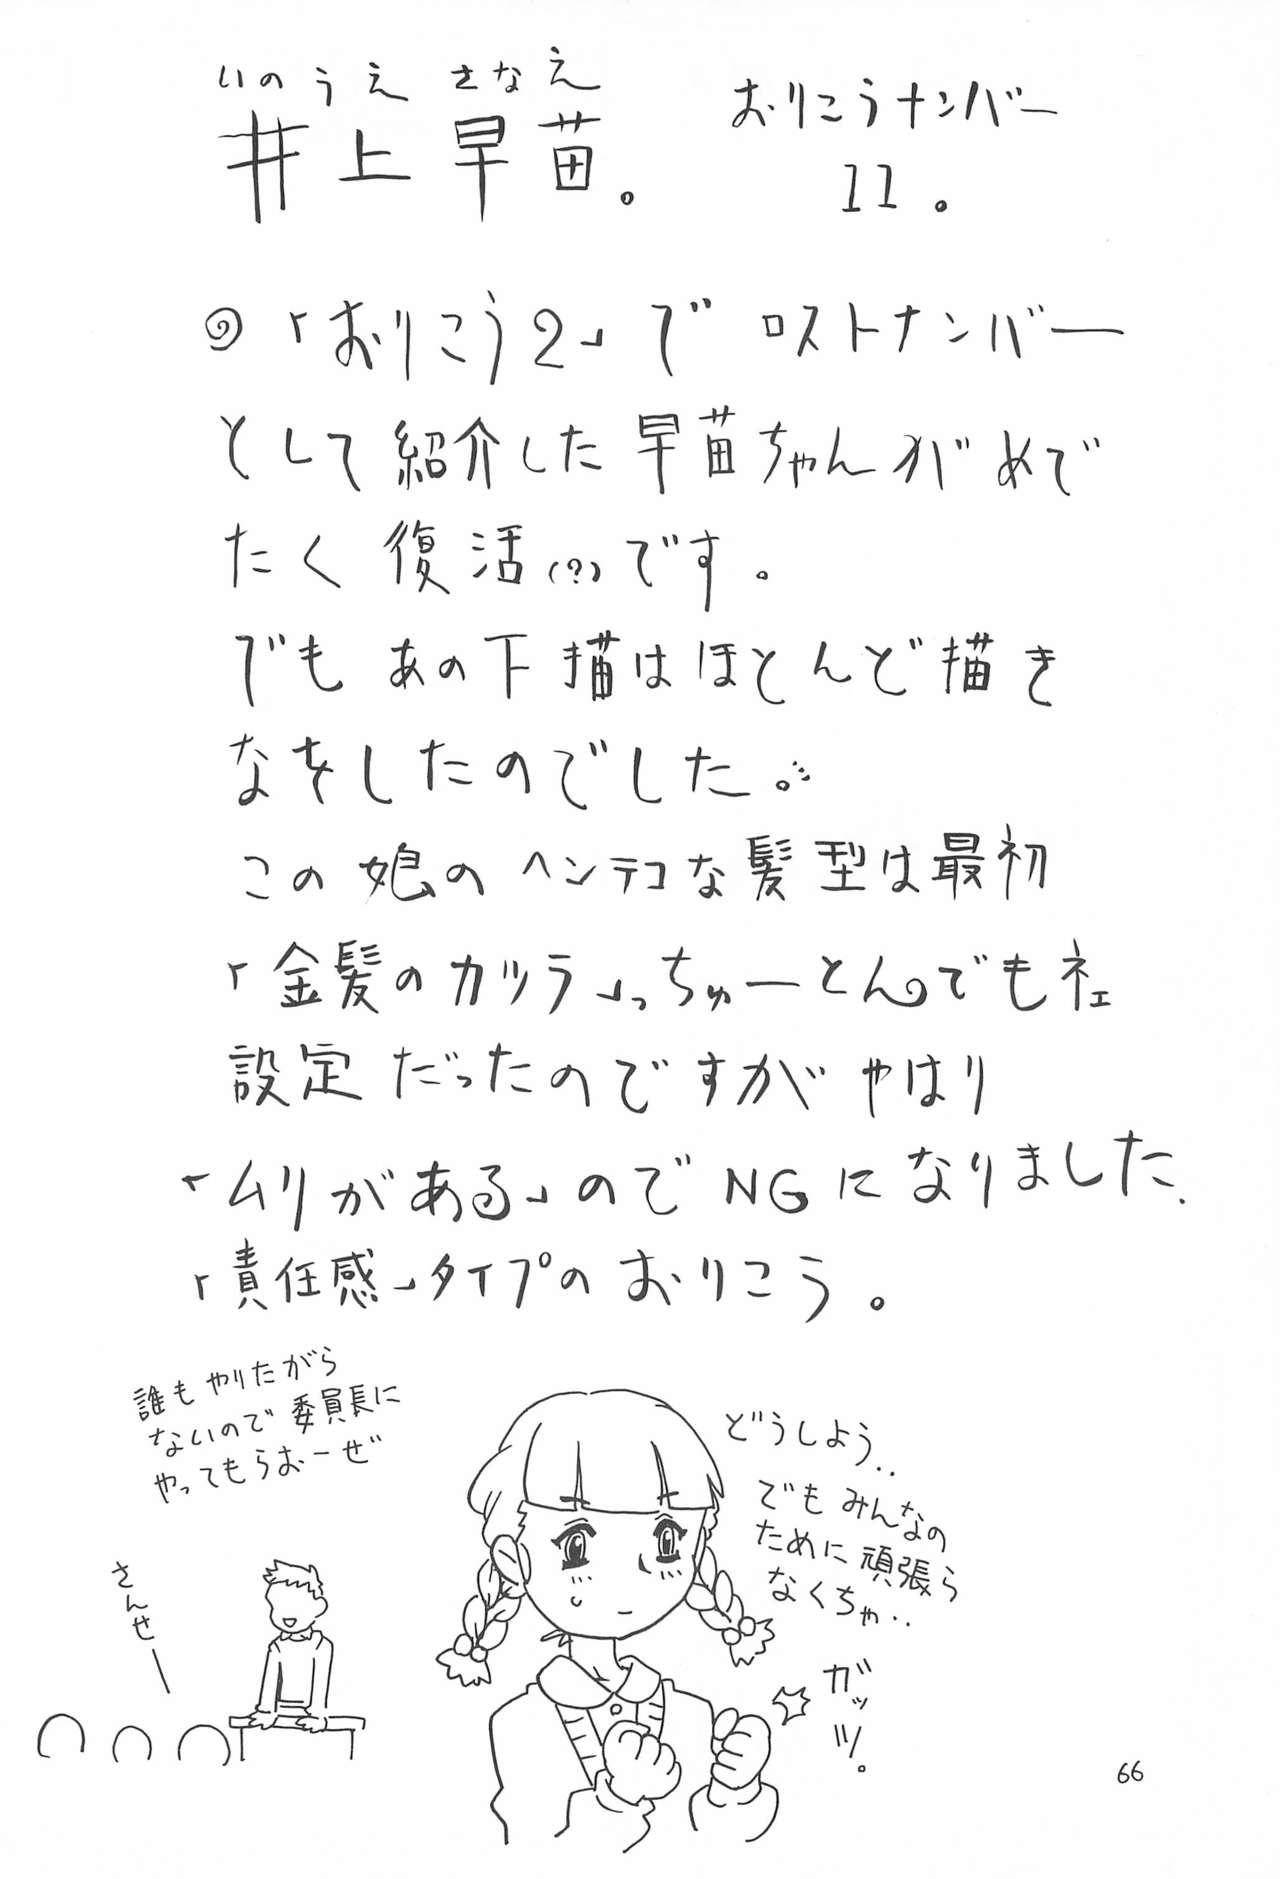 いのうえ さなえ
井上早苗。
おりこうナンバー
11。
◎「おりこう2」でロストナンバー
として紹介した早苗ちゃんがめで
たく復活(?)です。
でもあの下描はほとんど描き
なをしたのでした。
この娘のヘンテコな髪型は最初
「金髪のカツラ」っちゅーとんでも社
設定だったのですがやはり
「ムリがある」のでNGになりました.
「責任感」タイプのおりこう。
誰もやりたがら
ないので委員長に
やってもらおーぜ
さんせー
どうしよう..
でもみんなの
ために頑張ら
なくちゃ..
ガッツ。
66